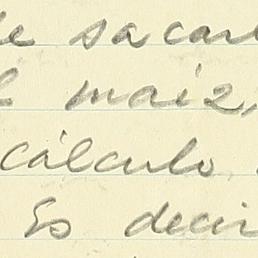 de sacar
maíz,
cálculo
Es decir